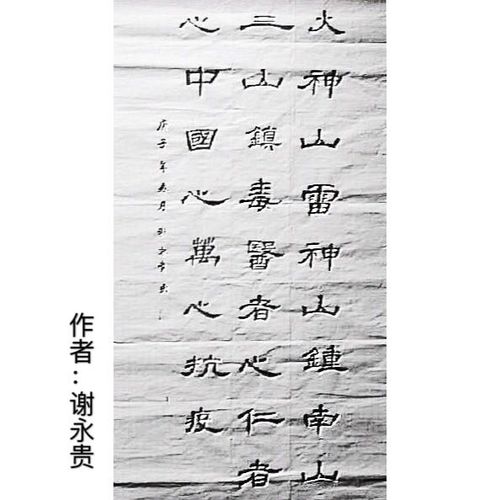 火神山雷神山鍾南山
三山鎮毒醫者心仁者
心中國心萬心抗疫
庚子年
作者：谢永贵